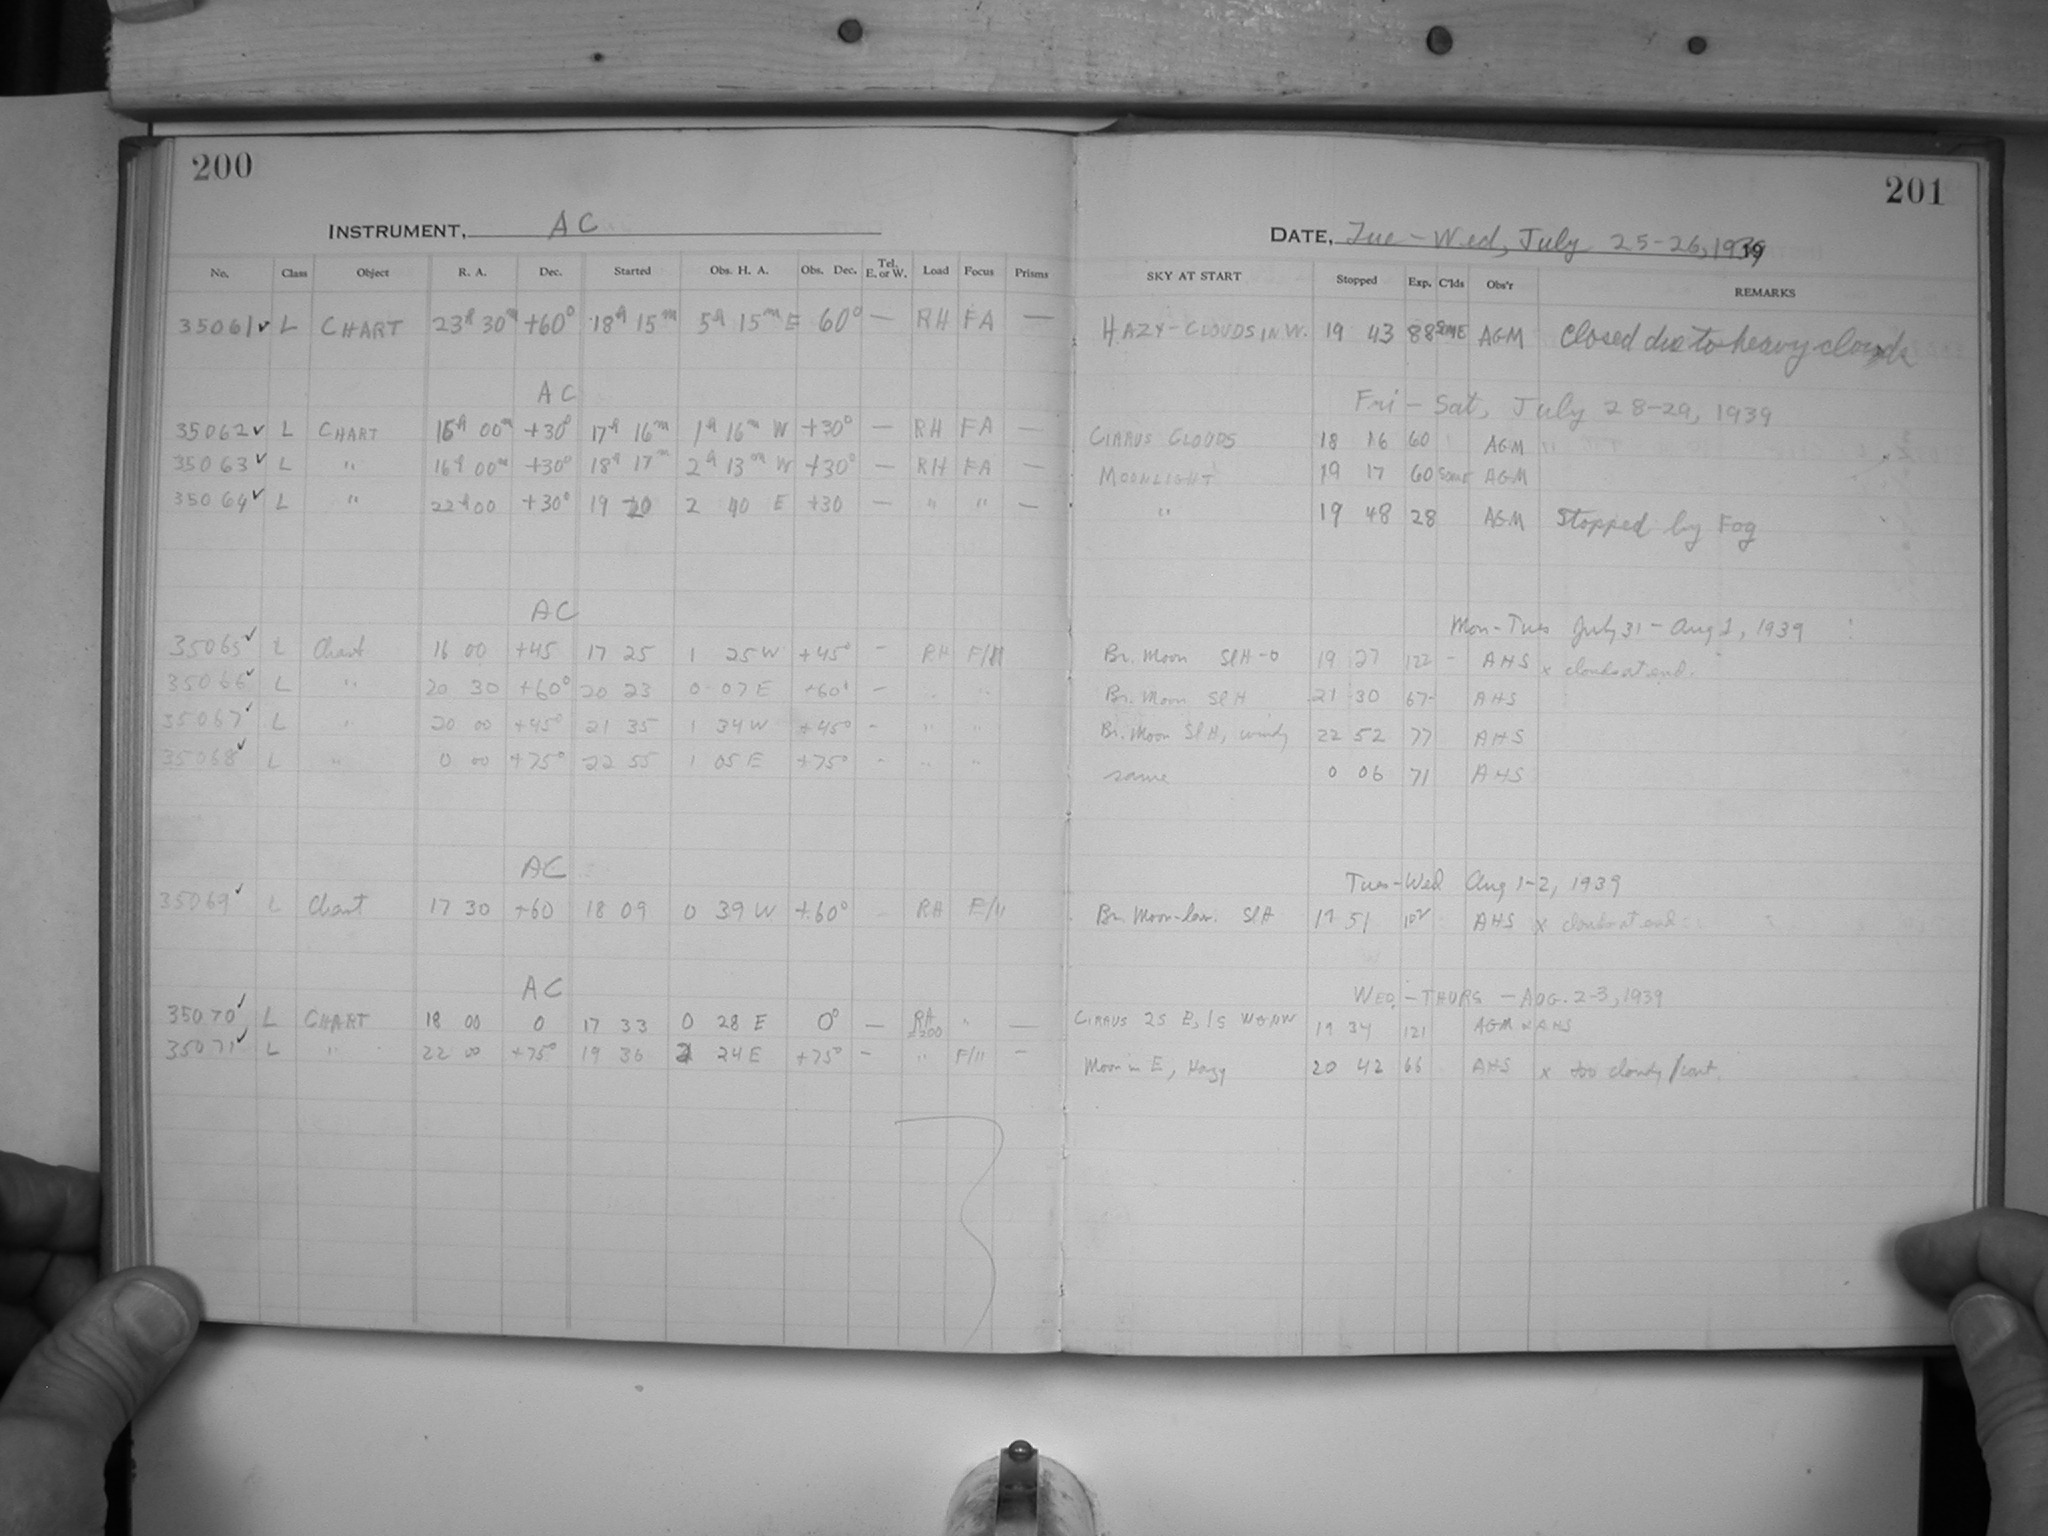 200
INSTRUMENT, AC
No. Class Object R. A. Dec. Started Obs. H. A. Obs. Dec. Tel. E. or W. Load Focus Prisms
35061✓ L CHART 23h 30m +60° 18h 15m 5h 15m E 60° — RH FA —
AC
35062✓ L CHART 16h 00m +30° 17h 16m 1h 16m W +30° — RH FA —
35063✓ L " 16h 00m +30° 18h 17m 2h 13m W +30° — RH FA —
35064✓ L " 22h 00 +30° 19 20 2 40 E +30 — " " —
AC
35065✓ L Chart 16 00 +45 17 25 1 25 W +45° - RH
35066✓ L " 20 30 +60° 20 23 0 07 E +60° - " "
35067✓ L " 20 00 +45° 21 35 1 34 W +45° - " "
35068✓ L " 0 00 +75° 22 55 1 05 E +75° - " "
AC
35069✓ L Chart 17 30 +60 18 09 0 39 W +60° - RH F/11
AC
35070✓ L CHART 18 00 0 17 33 0 28 E 0° — " —
35071✓ L " 22 00 +75° 19 36 2 24 E +75° - " F/11 -
201
DATE, Tue - Wed, July 25-26, 1939
SKY AT START Stopped Exp. C'lds Obs'r REMARKS
HAZY - CLOUDS IN W. 19 43 88 SOME AGM Closed due to heavy clouds
Fri - Sat, July 28-29, 1939
CIRRUS CLOUDS 18 16 60 AGM
MOONLIGHT 19 17 60 Some AGM
" 19 48 28 AGM Stopped by Fog
Mon-Tues July 31 - Aug 1, 1939
Br. Moon Sl H-0 19 27 122 - AHS x clouds at end.
Br. Moon Sl H 21 30 67 AHS
Br. Moon Sl H, windy 22 52 77 AHS
same 0 06 71 AHS
Tues-Wed Aug 1-2, 1939
Br. Moon-low. Sl H 19 51 102 AHS x clouds at end
WED. - THURS - AUG. 2-3, 1939
CIRRUS 19 34 121 AGM & AHS
Moon in E, Hazy 20 42 66 AHS x too cloudy